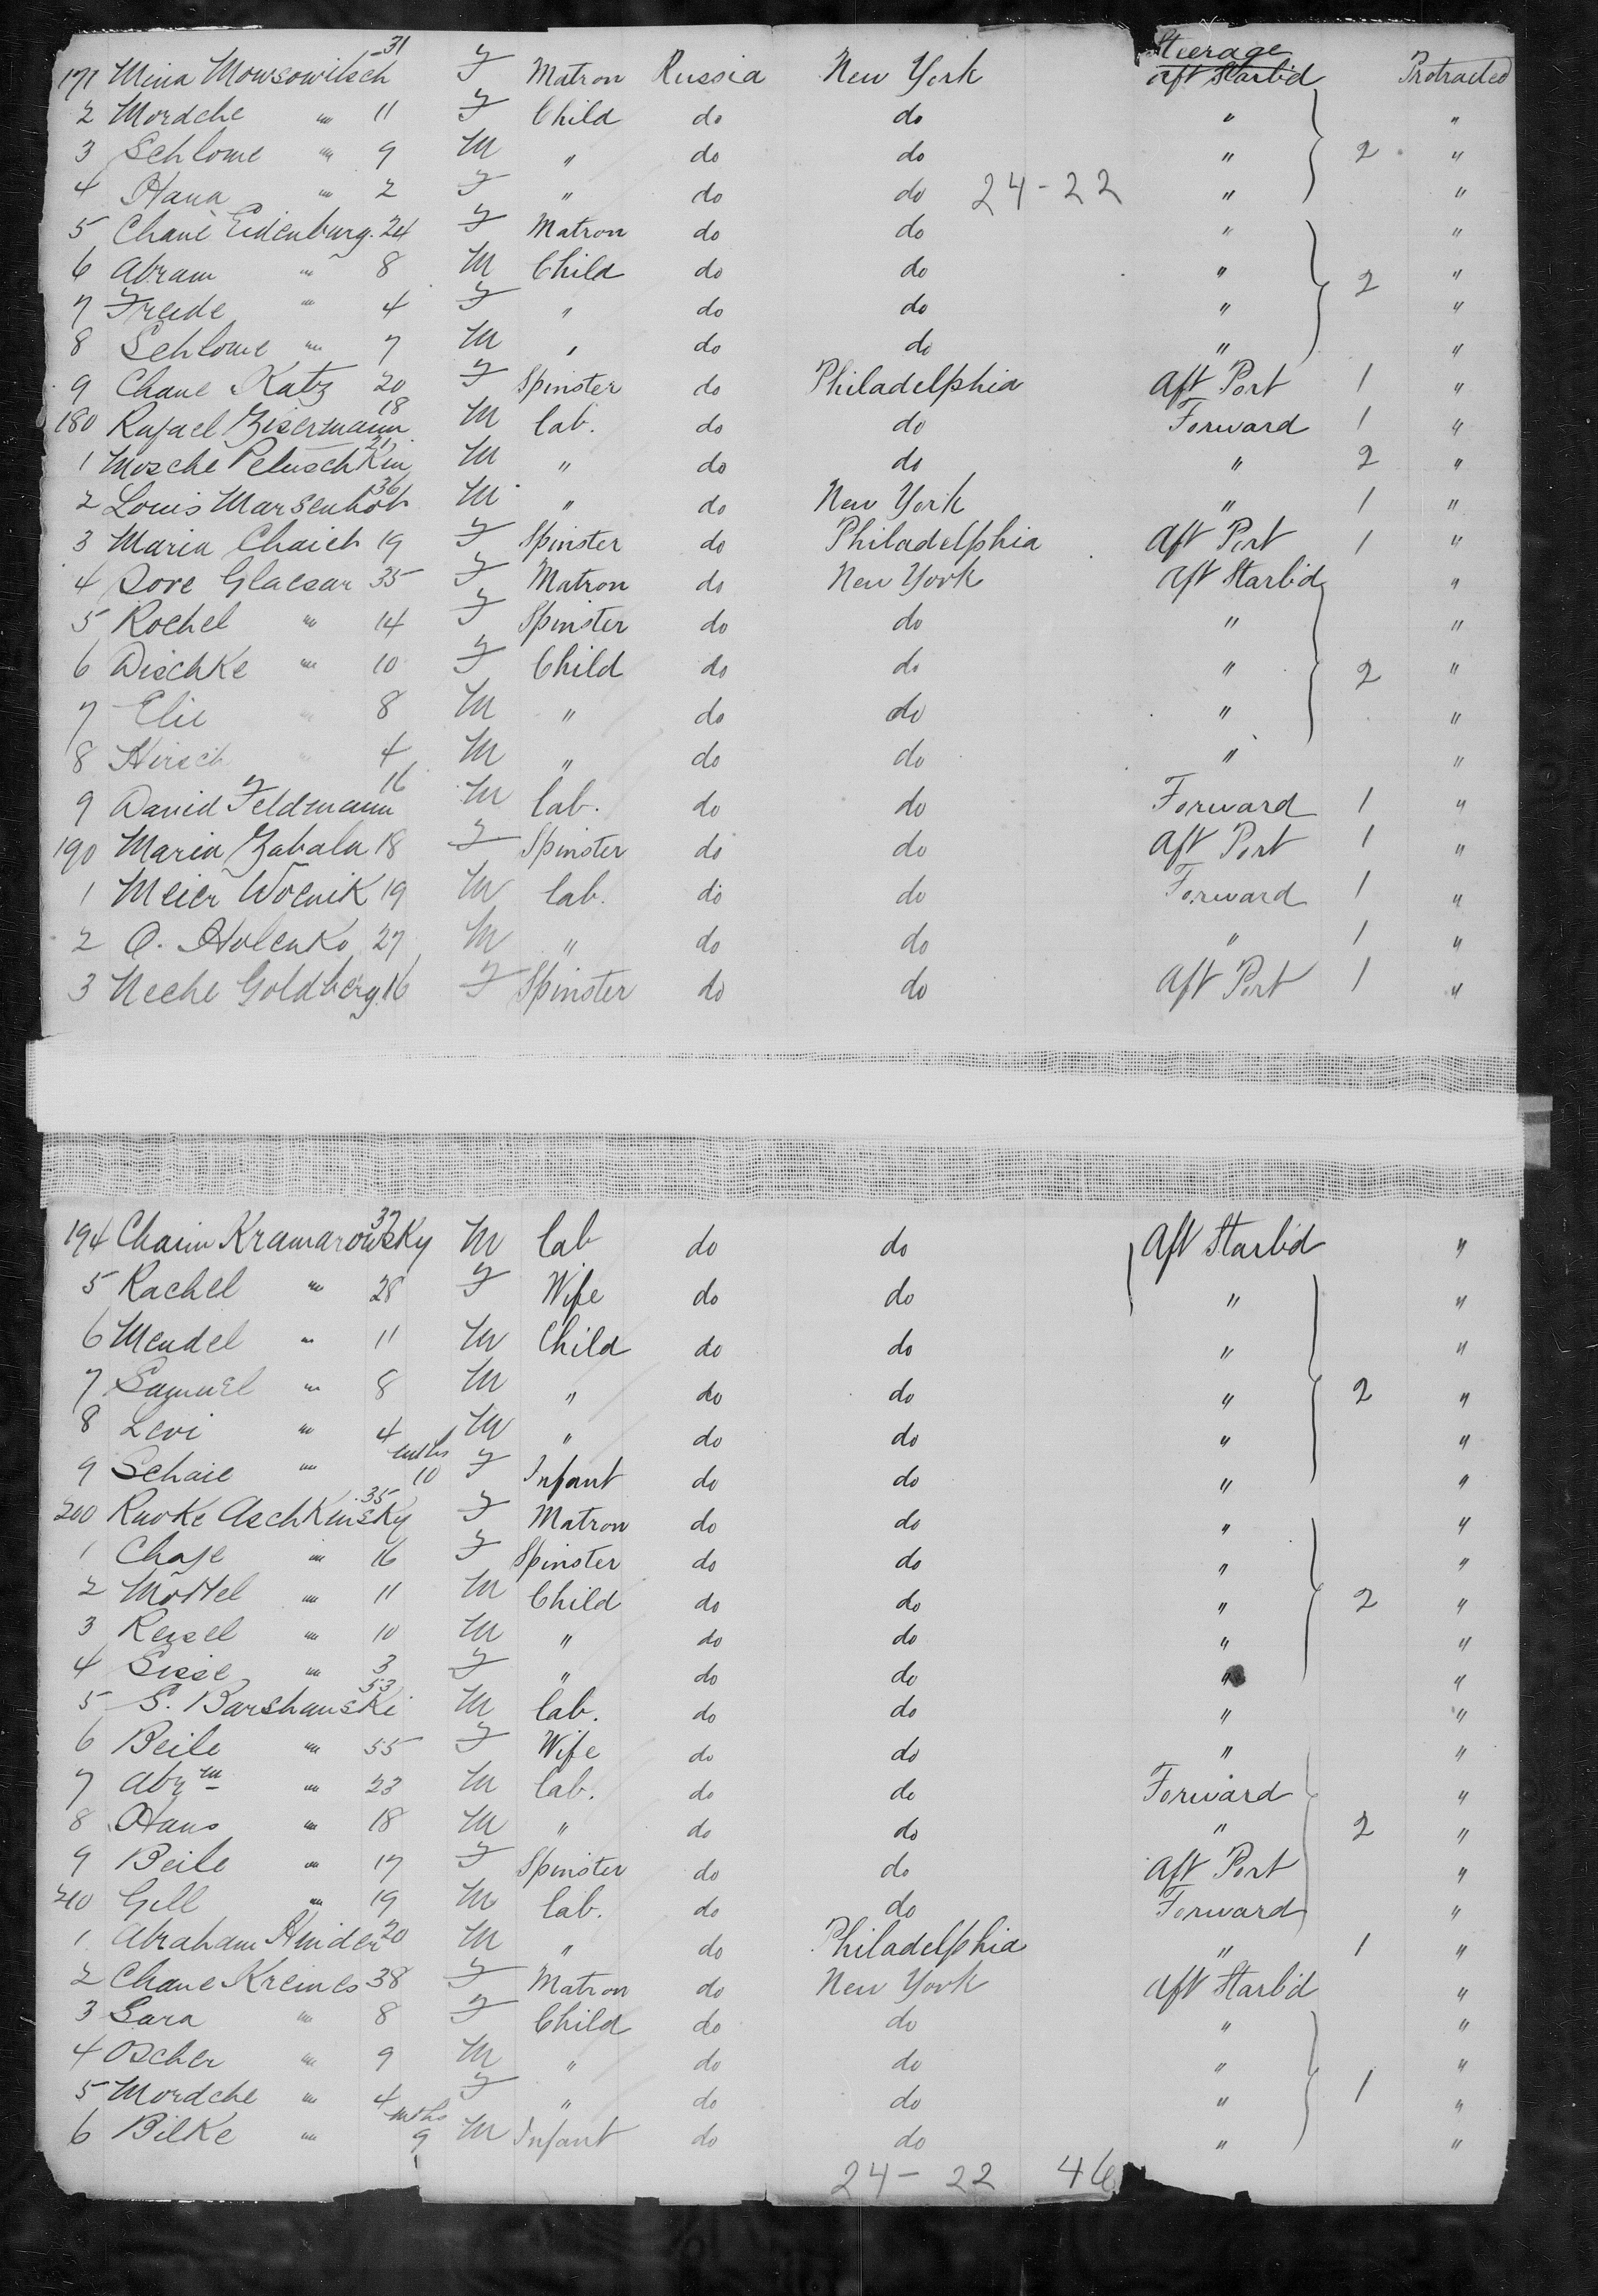 Steerage
171 Mina Mowsowitsch 31 F Matron Russia New York Aft Starb'd Protracted
2 Mordche " 11 F Child do do " "
3 Schlome " 9 M " do do " 2 "
4 Hana " 2 F " do do 24-22 " "
5 Chane Eidenburg. 24 F Matron do do " "
6 Abram " 8 M Child do do " 2 "
7 Freide " 4 F " do do " "
8 Schlome " 7 M " do do " "
9 Chane Katz 20 F Spinster do Philadelphia Aft Port 1 "
180 Rafael Zisermann 18 M lab. do do Forward 1 "
1 Mosche Petuschkin 21 M " do do " 2 "
2 Louis Marsenhob 36 M " do New York " 1 "
3 Maria Chaich 19 F Spinster do Philadelphia Aft Port 1 "
4 Sore Glaesar 35 F Matron do New York Aft Starb'd "
5 Rochel " 14 F Spinster do do " "
6 Dischke " 10 F Child do do " 2 "
7 Elie " 8 M " do do " "
8 Hirsch " 4 M " do do " "
9 David Feldmann 16 M lab. do do Forward 1 "
190 Maria Zabala 18 F Spinster do do Aft Port 1 "
1 Meier Wocnik 19 M lab. do do Forward 1 "
2 O. Holenko 27 M " do do " 1 "
3 Neche Goldberg. 16 F Spinster do do Aft Port 1 "
194 Chaim Kramarowsky 37 M lab do do Aft Starb'd "
5 Rachel " 28 F Wife do do " "
6 Mendel " 11 M Child do do " "
7 Samuel " 8 M " do do " 2 "
8 Levi " 4 M " do do " "
9 Schaie " mths 10 F Infant do do " "
200 Rwoke Aschkinsky 35 F Matron do do " "
1 Chaje " 16 F Spinster do do " "
2 Mottel " 11 M Child do do " 2 "
3 Reisel " 10 M " do do " "
4 Sisse " 3 F " do do " "
5 S. Barshanski 53 M lab. do do " "
6 Beile " 55 F Wife do do " "
7 Abrm " 23 M lab. do do Forward "
8 Hans " 18 M " do do " 2 "
9 Beile " 17 F Spinster do do Aft Port "
210 Gell " 19 M lab. do do Forward "
1 Abraham Hinder 20 M " do Philadelphia " 1 "
2 Chane Kreines 38 F Matron do New York Aft Starb'd "
3 Sara " 8 F Child do do " "
4 Oscher " 9 M " do do " "
5 Mordche " 4 F " do do " 1 "
6 Bilke " mths 9 M Infant do do " "
24-22 46